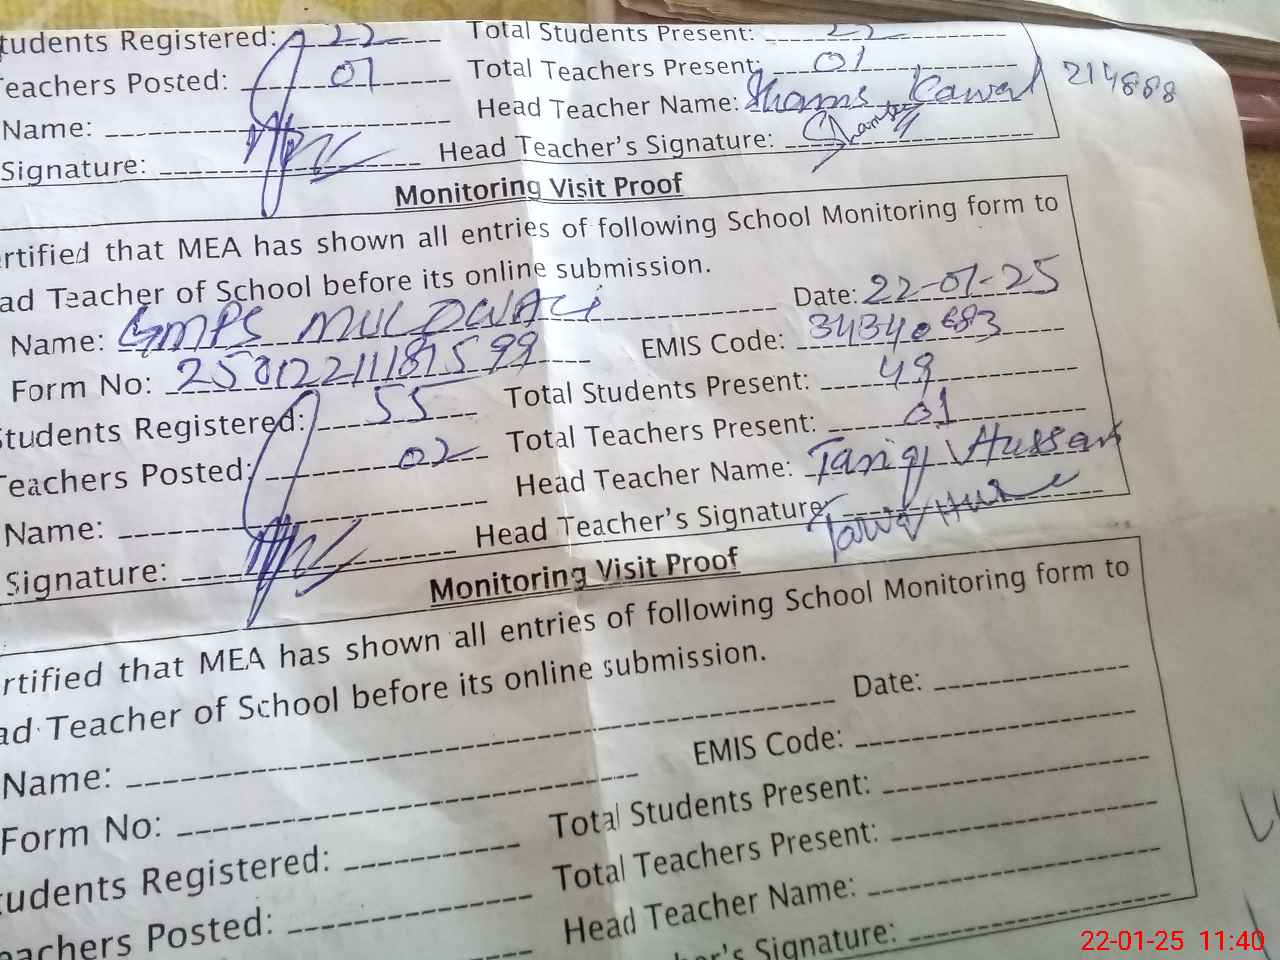 tudents Registered: 22 Total Students Present: 22
Teachers Posted: 01 Total Teachers Present: 01
Name: Head Teacher Name: Shams Kawal 214888
Signature: Head Teacher's Signature: Shams
Monitoring Visit Proof
rtified that MEA has shown all entries of following School Monitoring form to
ad Teacher of School before its online submission.
Date: 22-01-25
Name: GMPS
EMIS Code: 34340683
Form No:
Students Registered: 55 Total Students Present: 49
Teachers Posted: 02 Total Teachers Present: 01
Name: Head Teacher Name: Tariq Hussain
Signature: Head Teacher's Signature:
Monitoring Visit Proof
rtified that MEA has shown all entries of following School Monitoring form to
ad Teacher of School before its online submission.
Date:
Name:
EMIS Code:
Form No:
Total Students Present:
tudents Registered:
Total Teachers Present:
eachers Posted:
Head Teacher Name:
er's Signature:
22-01-25 11:40